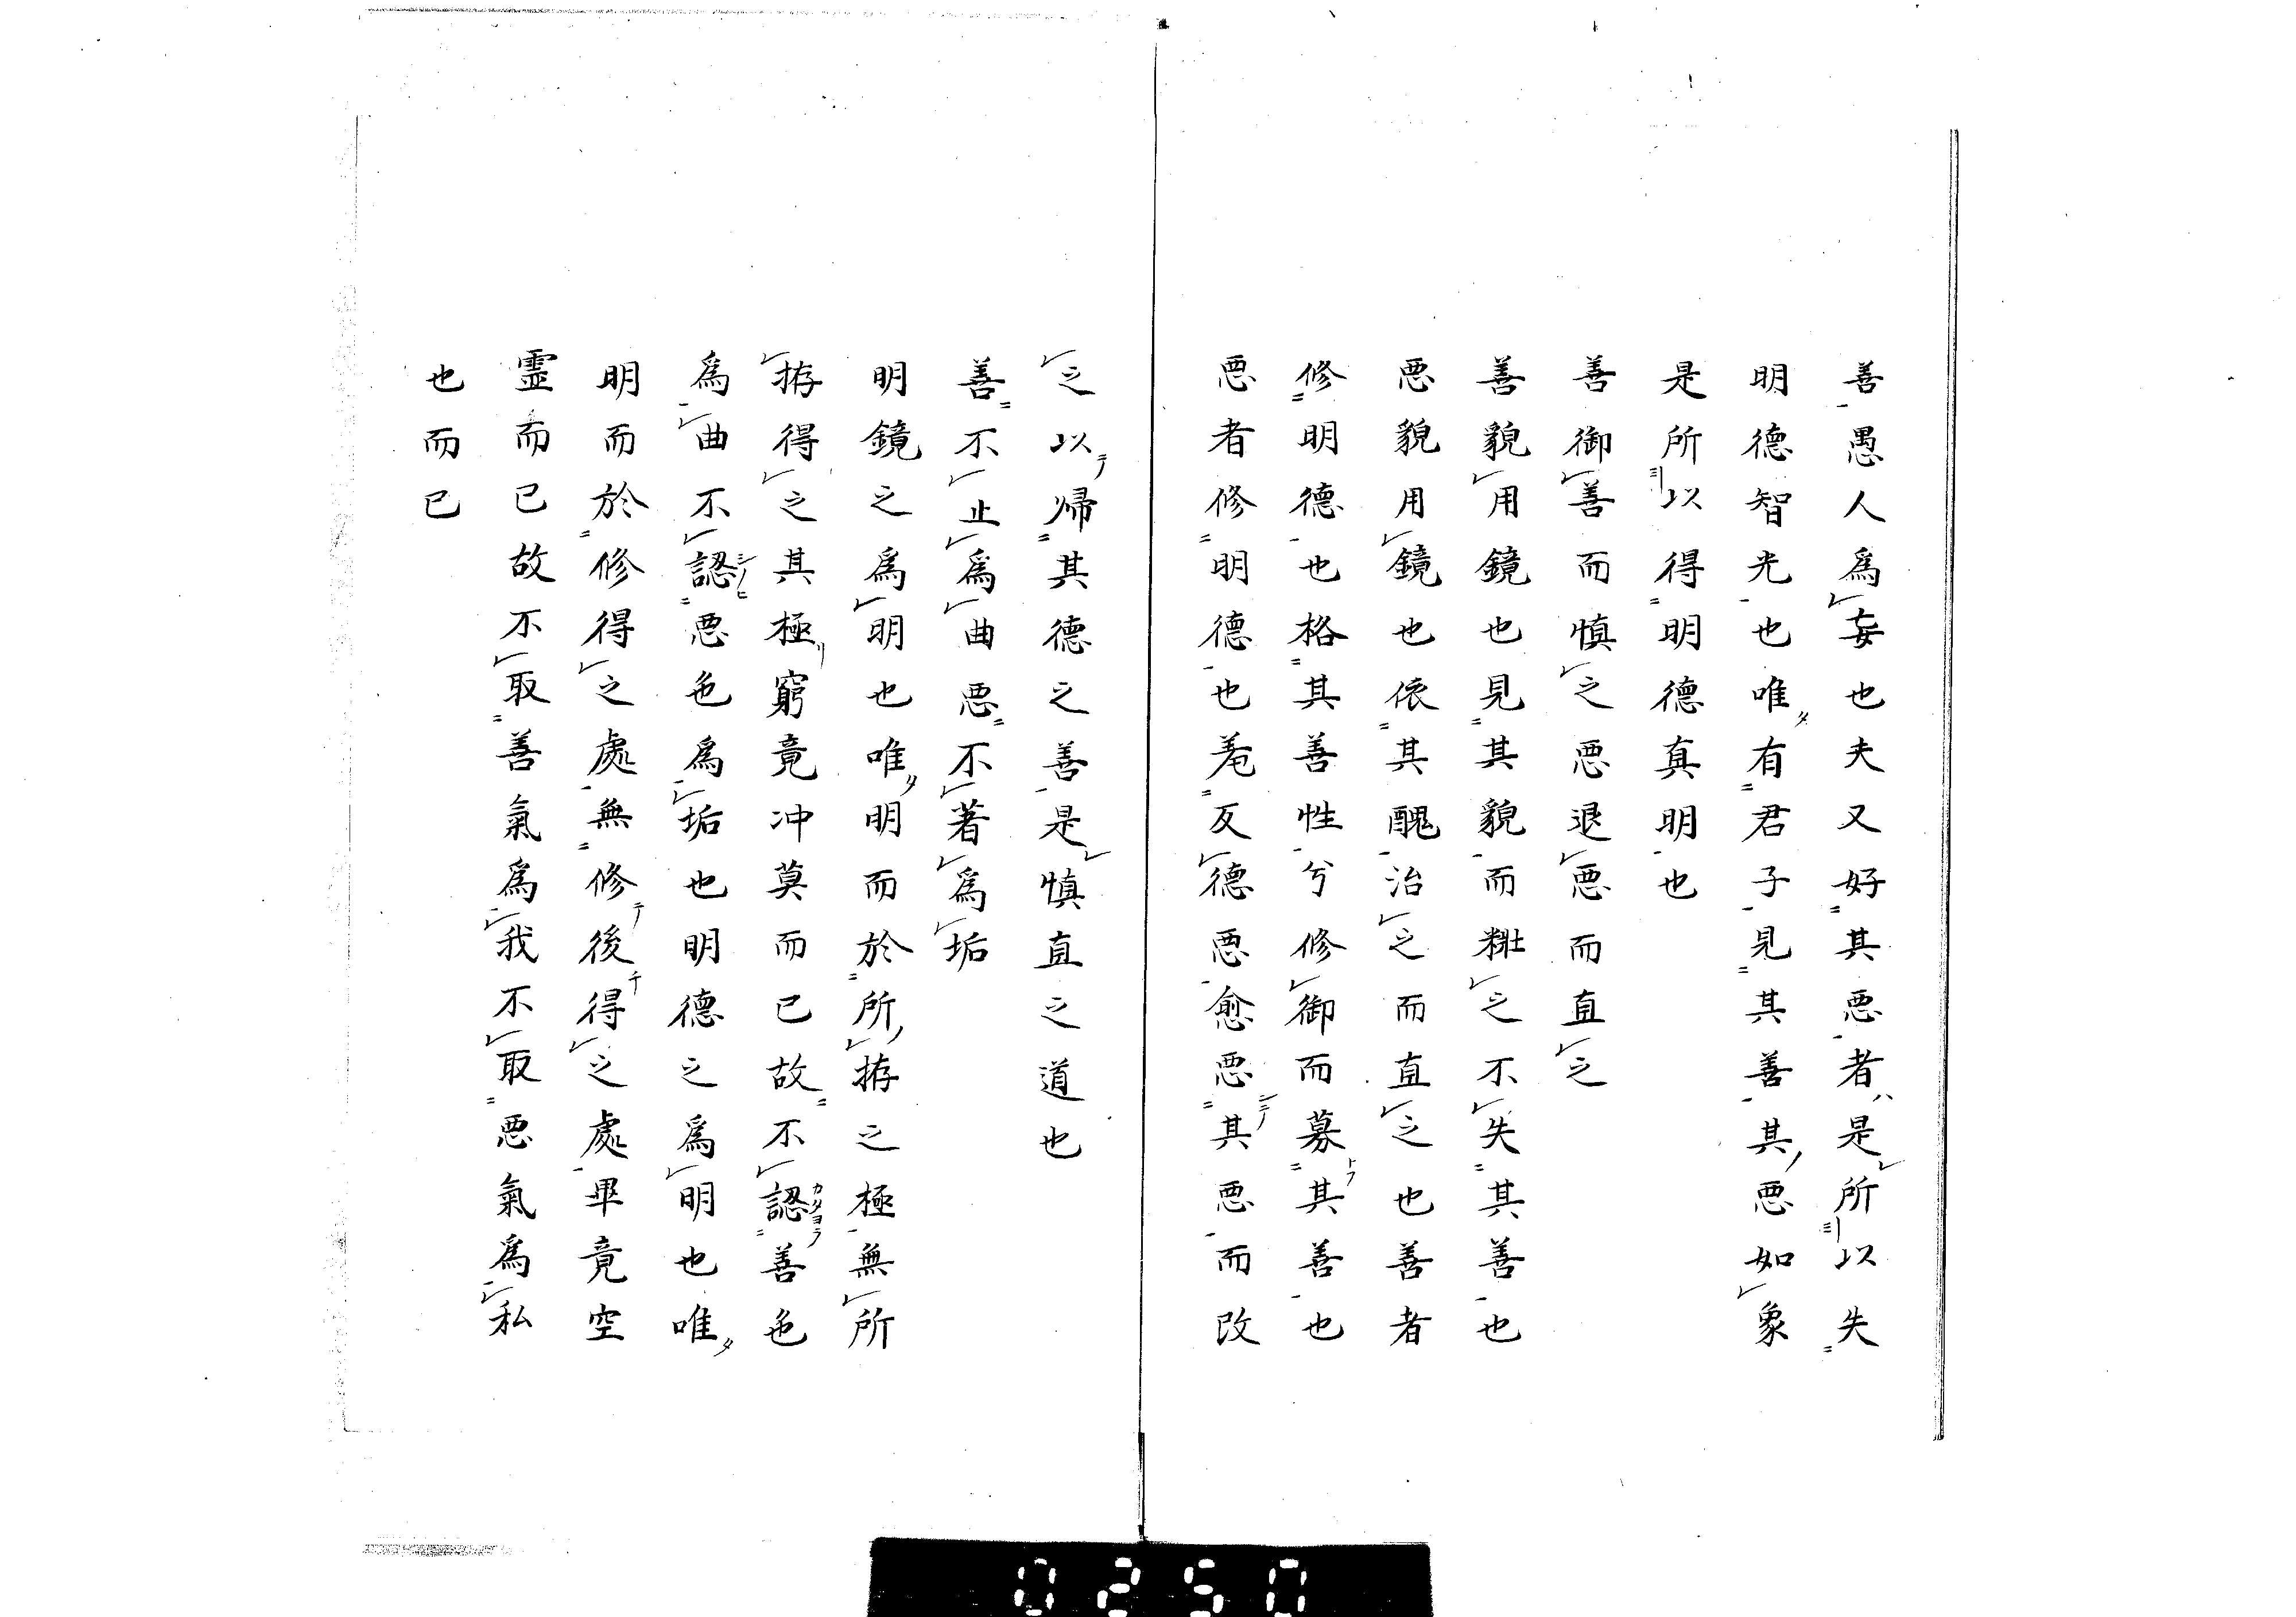 善愚人爲妄也夫又好其悪者是所以失
明德智光也唯有君子見其善其悪如象
是所以得明德真明也
善御善而慎之悪退悪而直之
善貌用鏡也見其貌而粧之不失其善也
悪貌用鏡也依其醜治之而直之也善者
修明德也格其善性兮修御而募其善也
悪者修明德也羗反德悪愈悪其悪而改
之以帰其德之善是慎直之道也
善不止爲曲悪不著爲垢
明鏡之爲明也唯明而於所拵之極無所
拵得之其極窮竟冲莫而已故不認善色
爲曲不認悪色爲垢也明德之爲明也唯
明而於修得之處無修後得之處畢竟空
霊而已故不取善氣爲我不取悪氣爲私
也而已
0250